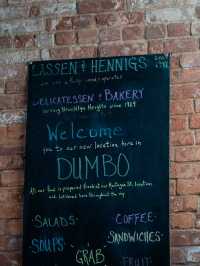 LASSEN & HENNIGS
we are a family owned & operated
DELICATESSEN & BAKERY
serving Brooklyn Heights since 1949
Welcome
you to our new location here in
DUMBO
All our food is prepared fresh at our Montague St. location
and delivered here throughout the day
SALADS
COFFEE
SOUPS
SANDWICHES
GRAB
FRUIT